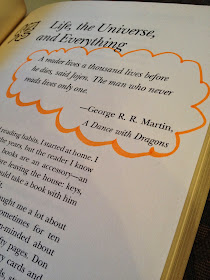 Life, the Universe,
and Everything
A reader lives a thousand lives before
he dies, said Jojen. The man who never
reads lives only one.
—George R. R. Martin,
A Dance with Dragons
reading habits. I started at home. I
the years, but the reader I know
books are an accessory—an
ore leaving the house: keys,
ould take a book with him
ught me a lot about
ometimes for ten
-minded about
fty pages. Don
ry cards and